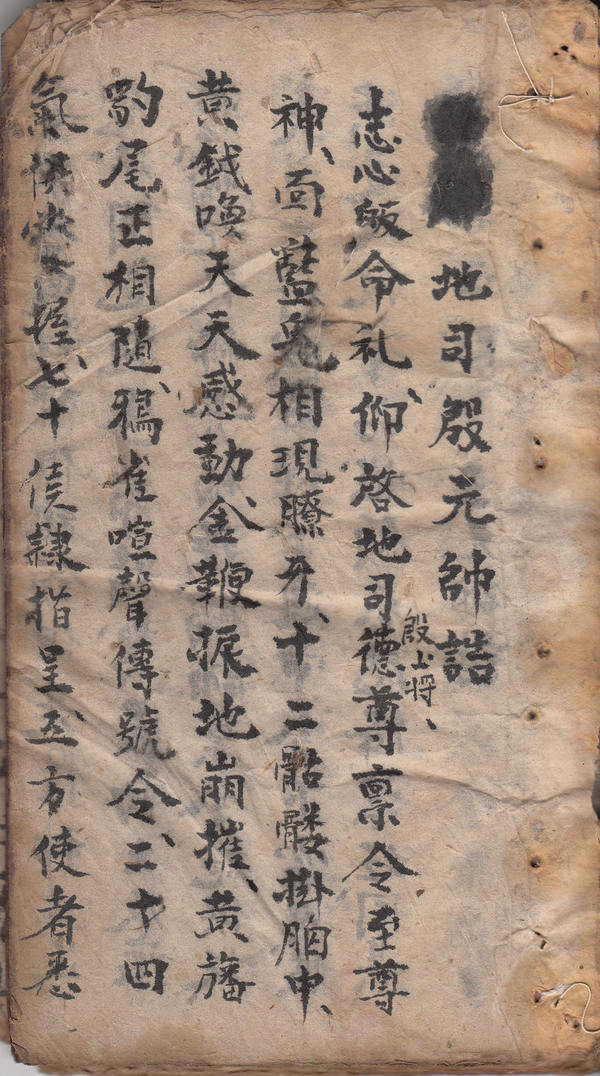 地司殷元帥誥
志心皈命礼、仰啓地司德尊禀令至尊
殷上将、
神、面藍鬼相現膫牙、十二骷髏掛胸中、
黄鉞喚天天感動、金鞭振地崩摧、黄旛
豹尾正相隨、鴉雀喧聲傳號令、二十四
氣候掌握、七十侯隷指呈、五方使者悉